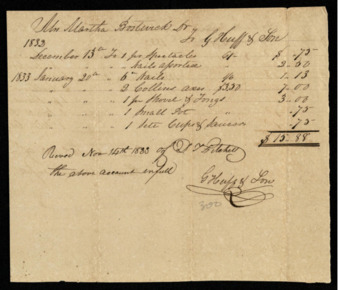 Mrs Martha Bostwick Dr
To G Huff & Son
1832
December 13th To 1 pr Spectacles $ .75
" " " nails assorted 2.00
1833 January 20th " 6d Nails 1.13
" " " 2 Collins axes $350 7.00
" " " 1 pr Shovel & Tongs 3.00
" " " 1 Small Pot " .75
" " " 1 Sett Cups & Saucers .75
$15.38
Recvd Nov 24th 1833 of
the above account in full
G Huff & Son
300